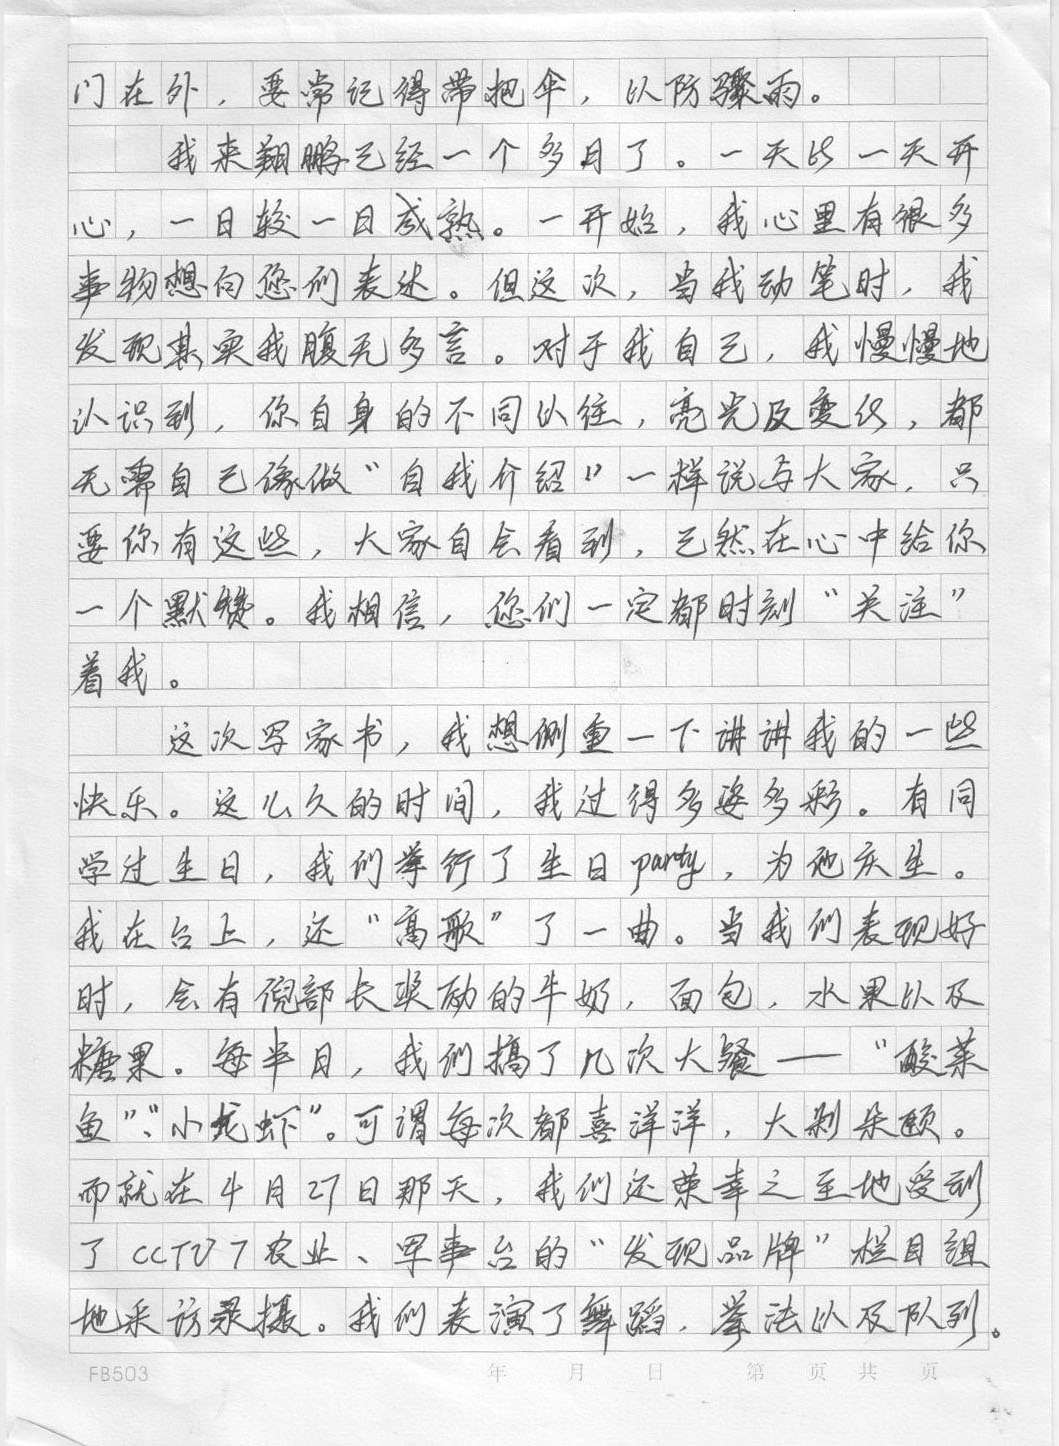 门在外，要常记得带把伞，以防骤雨。
我来翔鹏已经一个多月了。一天比一天开
心，一日较一日成熟。一开始，我心里有很多
事物想向您们表达。但这次，当我动笔时，我
发现其实我腹无多言。对于我自己，我慢慢地
认识到，你自身的不同以往，亮光及变化，都
无需自己像做“自我介绍”一样说与大家，只
要你有这些，大家自会看到，已然在心中给你
一个默赞。我相信，您们一定都时刻“关注”
着我。
这次写家书，我想侧重一下讲讲我的一些
快乐。这么久的时间，我过得多姿多彩。有同
学过生日，我们举行了生日party，为他庆生。
我在台上，还“高歌”了一曲。当我们表现好
时，会有倪部长奖励的牛奶，面包，水果以及
糖果。每半月，我们搞了几次大餐——“酸菜
鱼”、“小龙虾”。可谓每次都喜洋洋，大剁朵颐。
而就在4月27日那天，我们还荣幸之至地受到
了CCTV7农业、军事台的“发现品牌”栏目组
地采访录摄。我们表演了舞蹈，拳法以及队列。
FB503 年 月 日 第 页 共 页